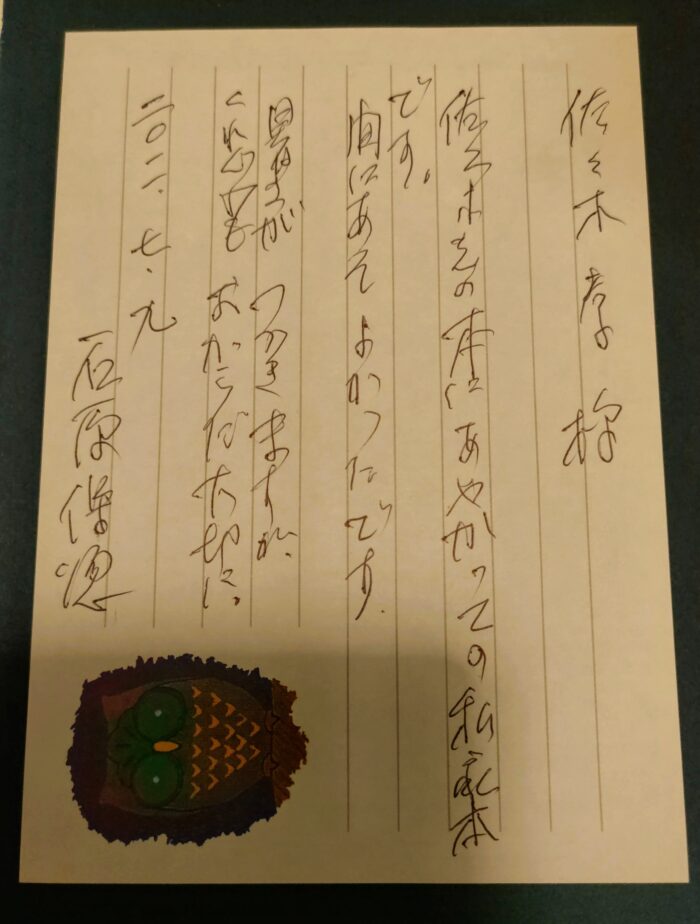 佐々木 孝 様
佐々木さの本にあやかっての私家本
です。
間にあってよかったです.
暑さが つづきますが、
くれぐれも おからだ大切に。
二〇一一.七.九
石原保徳